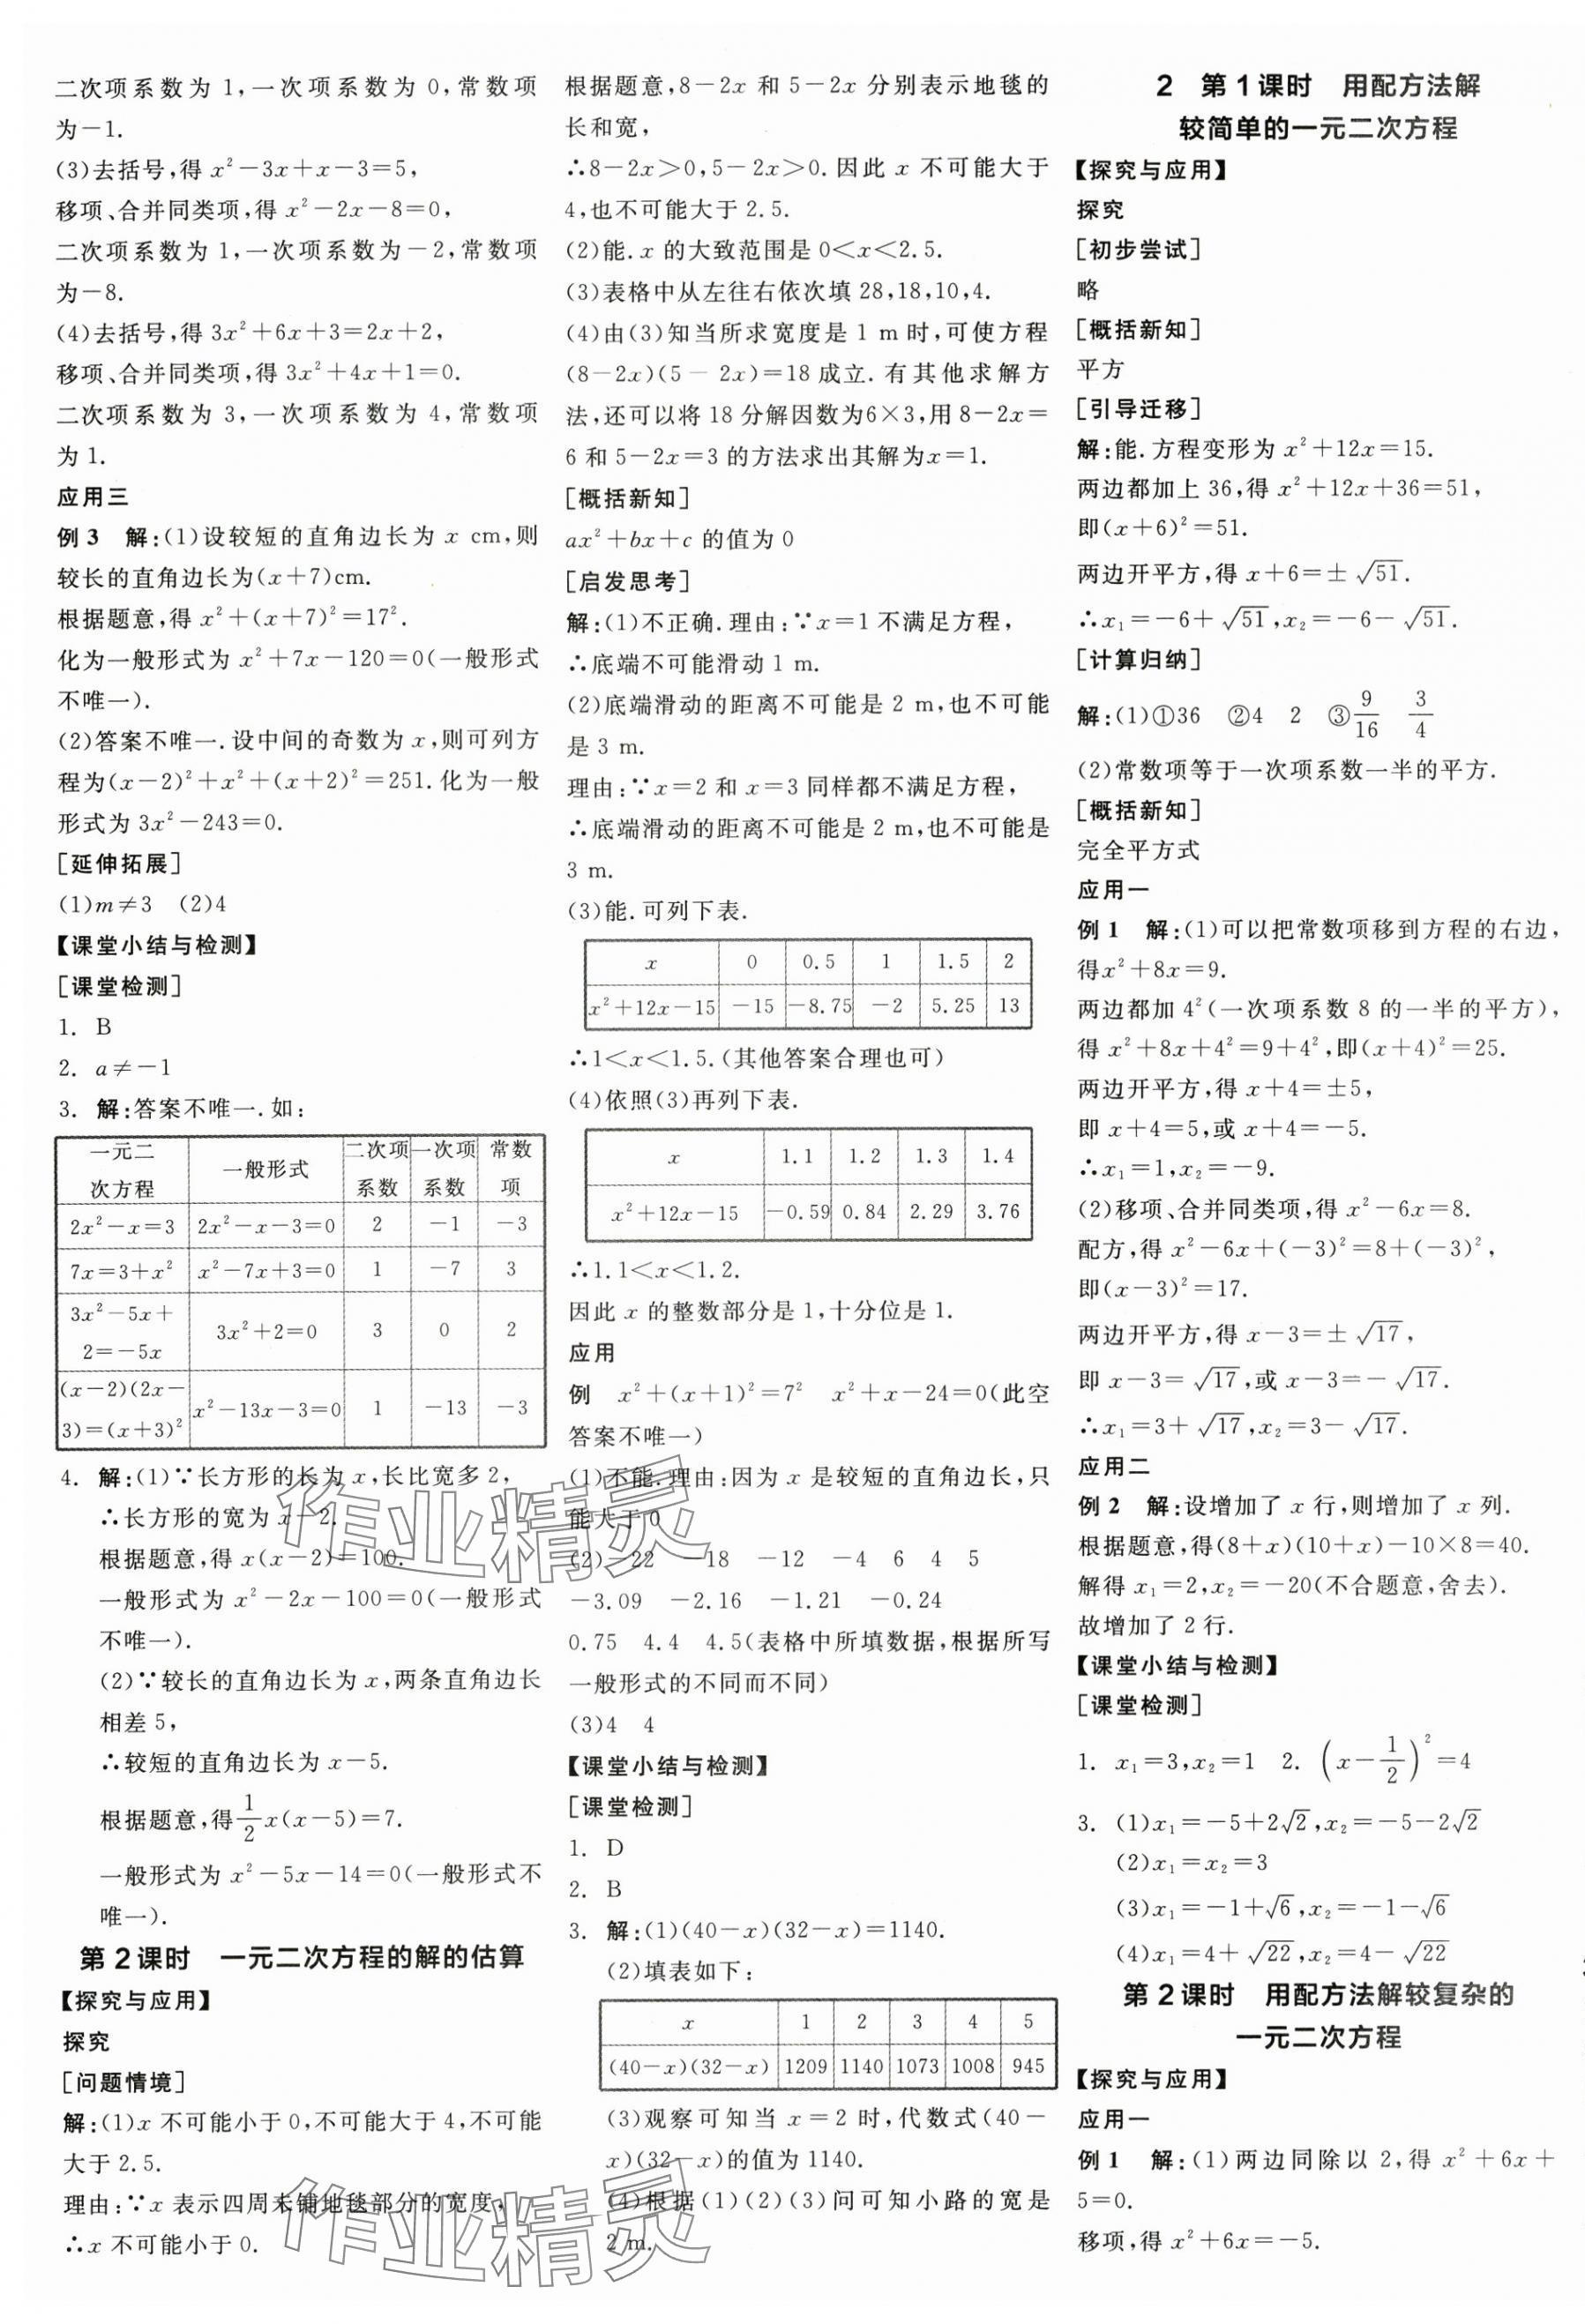 二次项系数为 1,一次项系数为 0,常数项
为-1.
(3)去括号,得 x²-3x+x-3=5,
移项、合并同类项,得 x²-2x-8=0,
二次项系数为 1,一次项系数为-2,常数项
为-8.
(4)去括号,得 3x²+6x+3=2x+2,
移项、合并同类项,得 3x²+4x+1=0.
二次项系数为 3,一次项系数为 4,常数项
为 1.
应用三
例 3 解:(1)设较短的直角边长为 x cm,则
较长的直角边长为(x+7)cm.
根据题意,得 x²+(x+7)²=17².
化为一般形式为 x²+7x-120=0(一般形式
不唯一).
(2)答案不唯一.设中间的奇数为 x,则可列方
程为(x-2)²+x²+(x+2)²=251.化为一般
形式为 3x²-243=0.
[延伸拓展]
(1)m≠3 (2)4
【课堂小结与检测】
[课堂检测]
1. B
2. a≠-1
3. 解:答案不唯一.如:
一元二次方程 一般形式 二次项系数 一次项系数 常数项
2x²-x=3 2x²-x-3=0 2 -1 -3
7x=3+x² x²-7x+3=0 1 -7 3
3x²-5x+2=-5x 3x²+2=0 3 0 2
(x-2)(2x-3)=(x+3)² x²-13x-3=0 1 -13 -3
4. 解:(1)∵长方形的长为 x,长比宽多 2,
∴长方形的宽为 x-2.
根据题意,得 x(x-2)=100.
一般形式为 x²-2x-100=0(一般形式
不唯一).
(2)∵较长的直角边长为 x,两条直角边长
相差 5,
∴较短的直角边长为 x-5.
根据题意,得 1/2 x(x-5)=7.
一般形式为 x²-5x-14=0(一般形式不
唯一).
第 2 课时 一元二次方程的解的估算
【探究与应用】
探究
[问题情境]
解:(1)x 不可能小于 0,不可能大于 4,不可能
大于 2.5.
理由:∵x 表示四周未铺地毯部分的宽度,
∴x 不可能小于 0.
根据题意,8-2x 和 5-2x 分别表示地毯的
长和宽,
∴8-2x>0,5-2x>0.因此 x 不可能大于
4,也不可能大于 2.5.
(2)能.x 的大致范围是 0<x<2.5.
(3)表格中从左往右依次填 28,18,10,4.
(4)由(3)知当所求宽度是 1 m 时,可使方程
(8-2x)(5-2x)=18 成立.有其他求解方
法,还可以将 18 分解因数为6×3,用 8-2x=
6 和 5-2x=3 的方法求出其解为x=1.
[概括新知]
ax²+bx+c 的值为 0
[启发思考]
解:(1)不正确.理由:∵x=1 不满足方程,
∴底端不可能滑动 1 m.
(2)底端滑动的距离不可能是 2 m,也不可能
是 3 m.
理由:∵x=2 和 x=3 同样都不满足方程,
∴底端滑动的距离不可能是 2 m,也不可能是
3 m.
(3)能.可列下表.
x 0 0.5 1 1.5 2
x²+12x-15 -15 -8.75 -2 5.25 13
∴1<x<1.5.(其他答案合理也可)
(4)依照(3)再列下表.
x 1.1 1.2 1.3 1.4
x²+12x-15 -0.59 0.84 2.29 3.76
∴1.1<x<1.2.
因此 x 的整数部分是 1,十分位是 1.
应用
例 x²+(x+1)²=7² x²+x-24=0(此空
答案不唯一)
(1)不能.理由:因为 x 是较短的直角边长,只
能大于 0
(2)-22 -18 -12 -4 6 4 5
-3.09 -2.16 -1.21 -0.24
0.75 4.4 4.5(表格中所填数据,根据所写
一般形式的不同而不同)
(3)4 4
【课堂小结与检测】
[课堂检测]
1. D
2. B
3. 解:(1)(40-x)(32-x)=1140.
(2)填表如下:
x 1 2 3 4 5
(40-x)(32-x) 1209 1140 1073 1008 945
(3)观察可知当 x=2 时,代数式(40-
x)(32-x)的值为 1140.
(4)根据(1)(2)(3)问可知小路的宽是
2 m.
2 第 1 课时 用配方法解
较简单的一元二次方程
【探究与应用】
探究
[初步尝试]
略
[概括新知]
平方
[引导迁移]
解:能.方程变形为 x²+12x=15.
两边都加上 36,得 x²+12x+36=51,
即(x+6)²=51.
两边开平方,得 x+6=±√51.
∴x₁=-6+√51,x₂=-6-√51.
[计算归纳]
解:(1)①36 ②4 2 ③9/16 3/4
(2)常数项等于一次项系数一半的平方.
[概括新知]
完全平方式
应用一
例 1 解:(1)可以把常数项移到方程的右边,
得x²+8x=9.
两边都加 4²(一次项系数 8 的一半的平方),
得 x²+8x+4²=9+4²,即(x+4)²=25.
两边开平方,得 x+4=±5,
即 x+4=5,或 x+4=-5.
∴x₁=1,x₂=-9.
(2)移项、合并同类项,得 x²-6x=8.
配方,得 x²-6x+(-3)²=8+(-3)²,
即(x-3)²=17.
两边开平方,得 x-3=±√17,
即 x-3=√17,或 x-3=-√17.
∴x₁=3+√17,x₂=3-√17.
应用二
例 2 解:设增加了 x 行,则增加了 x 列.
根据题意,得(8+x)(10+x)-10×8=40.
解得 x₁=2,x₂=-20(不合题意,舍去).
故增加了 2 行.
【课堂小结与检测】
[课堂检测]
1. x₁=3,x₂=1 2. (x-1/2)²=4
3. (1)x₁=-5+2√2,x₂=-5-2√2
(2)x₁=x₂=3
(3)x₁=-1+√6,x₂=-1-√6
(4)x₁=4+√22,x₂=4-√22
第 2 课时 用配方法解较复杂的
一元二次方程
【探究与应用】
应用一
例 1 解:(1)两边同除以 2,得 x²+6x+
5=0.
移项,得 x²+6x=-5.
作业精灵
作业精灵